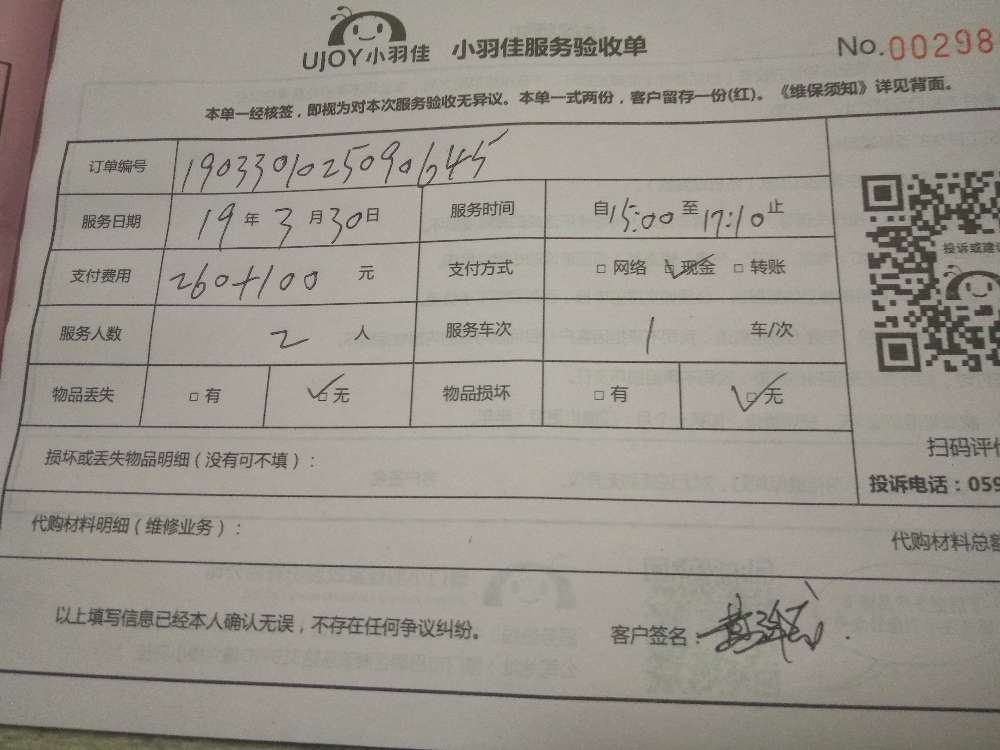 UJOY小羽佳 小羽佳服务验收单 No.00298
本单一经核签，即视为对本次服务验收无异议。本单一式两份，客户留存一份(红)。《维保须知》详见背面。
订单编号 190330102509064​5
服务日期 19年3月30日 服务时间 自15:00至17:10止
支付费用 260+100 元 支付方式 □网络 ☑现金 □转账
服务人数 2 人 服务车次 1 车/次
物品丢失 □有 ☑无 物品损坏 □有 ☑无
投诉或建议
损坏或丢失物品明细（没有可不填）：
扫码评
投诉电话：059
代购材料明细（维修业务）：
代购材料总额
以上填写信息已经本人确认无误，不存在任何争议纠纷。 客户签名：